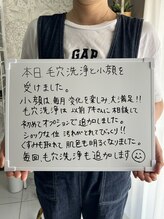 GAP
本日 毛穴洗浄と小顔を
受けました。
小顔は毎月変化を楽しみ 大満足!!
毛穴洗浄は以前アキさんに相談して
初めてオプションで追加しました。
ショックな位 汚れがとれてびっくり!!
くすみを取れ、肌色も明るくなりました。
毎回毛穴洗浄も追加します